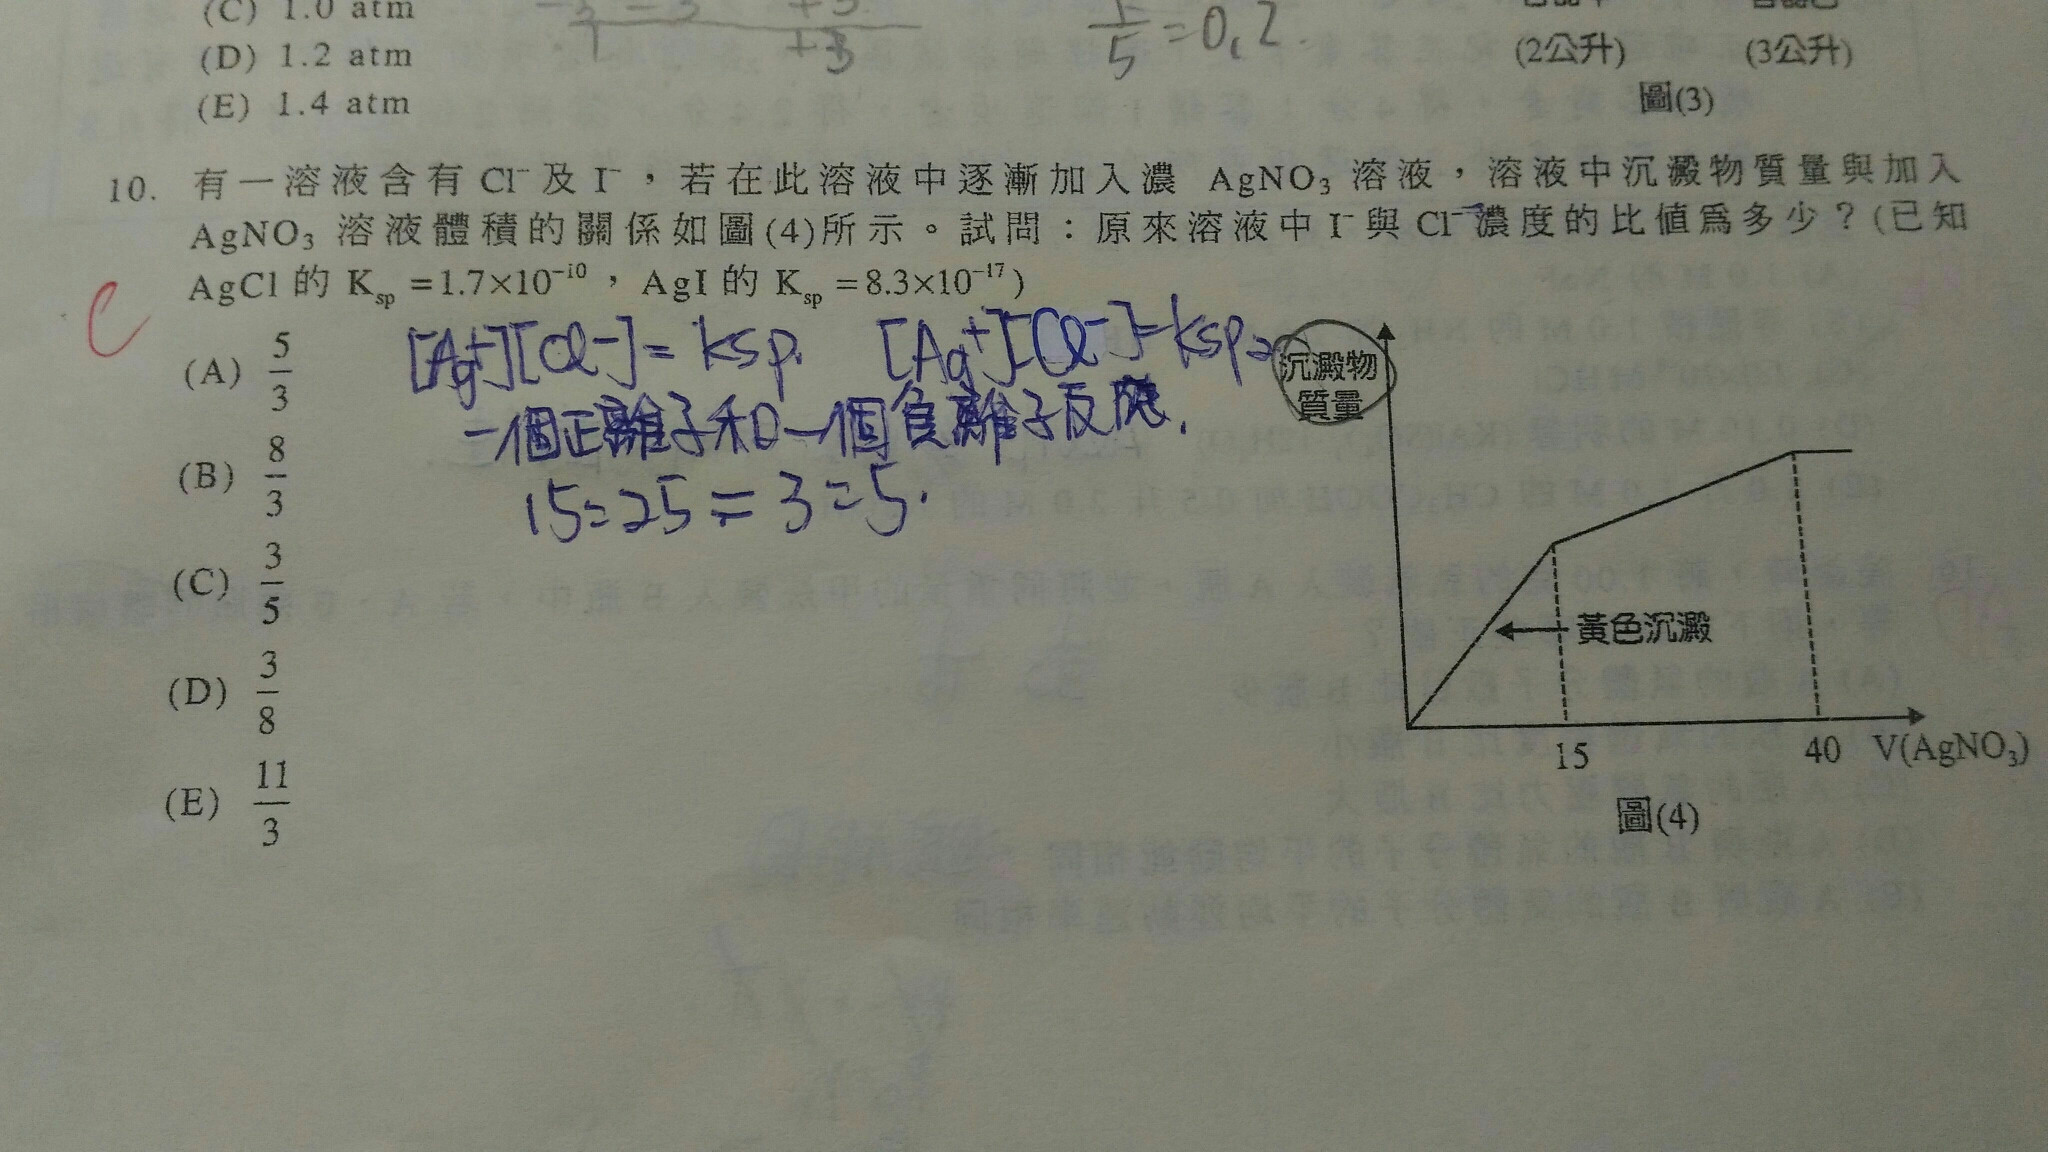 (C) 1.0 atm
(D) 1.2 atm
(E) 1.4 atm
+3
5 =0.2
(2公升) (3公升)
圖(3)
10. 有一溶液含有 Cl⁻ 及 I⁻，若在此溶液中逐漸加入濃 AgNO₃ 溶液，溶液中沉澱物質量與加入
AgNO₃ 溶液體積的關係如圖(4)所示。試問：原來溶液中 I⁻ 與 Cl⁻ 濃度的比值為多少？(已知
AgCl 的 Ksp =1.7×10⁻¹⁰，AgI 的 Ksp =8.3×10⁻¹⁷)
C
(A) 5/3
(B) 8/3
(C) 3/5
(D) 3/8
(E) 11/3
[Ag⁺][Cl⁻]=ksp₁ [Ag⁺][Cl⁻]=ksp₂
一個正離子和一個負離子反應.
15:25=3:5.
沉澱物
質量
黃色沉澱
15 40 V(AgNO₃)
圖(4)